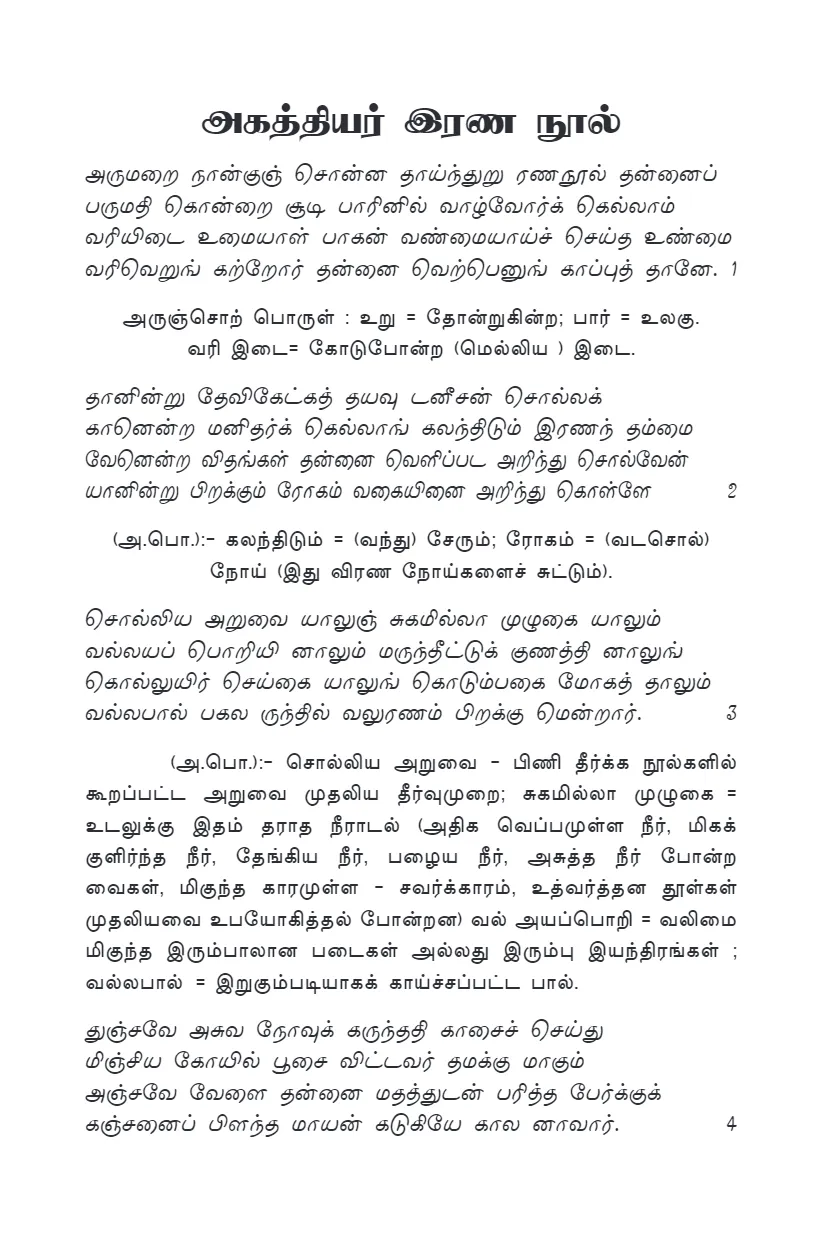 அகத்தியர் இரண நூல்
அருமறை நான்குஞ் சொன்ன தாய்ந்துறு ரணநூல் தன்னைப்
பருமதி கொன்றை சூடி பாரினில் வாழ்வோர்க் கெல்லாம்
வரியிடை உமையாள் பாகன் வண்மையாய்ச் செய்த உண்மை
வரிவெறுங் கற்றோர் தன்னை வெற்பெனுங் காப்புத் தானே. 1
அருஞ்சொற் பொருள் : உறு = தோன்றுகின்ற; பார் = உலகு.
வரி இடை= கோடுபோன்ற (மெல்லிய ) இடை.
தானின்று தேவிகேட்கத் தயவு டனீசன் சொல்லக்
கானென்ற மனிதர்க் கெல்லாங் கலந்திடும் இரணந் தம்மை
வேனென்ற விதங்கள் தன்னை வெளிப்பட அறிந்து சொல்வேன்
யானின்று பிறக்கும் ரோகம் வகையினை அறிந்து கொள்ளே 2
(அ.பொ.):- கலந்திடும் = (வந்து) சேரும்; ரோகம் = (வடசொல்)
நோய் (இது விரண நோய்களைச் சுட்டும்).
சொல்லிய அறுவை யாலுஞ் சுகமில்லா முழுகை யாலும்
வல்லயப் பொறியி னாலும் மருந்தீட்டுக் குணத்தி னாலுங்
கொல்லுயிர் செய்கை யாலுங் கொடும்பகை மோகத் தாலும்
வல்லபால் பகல ருந்தில் வலுரணம் பிறக்கு மென்றார். 3
(அ.பொ.):- சொல்லிய அறுவை - பிணி தீர்க்க நூல்களில்
கூறப்பட்ட அறுவை முதலிய தீர்வுமுறை; சுகமில்லா முழுகை =
உடலுக்கு இதம் தராத நீராடல் (அதிக வெப்பமுள்ள நீர், மிகக்
குளிர்ந்த நீர், தேங்கிய நீர், பழைய நீர், அசுத்த நீர் போன்ற
வைகள், மிகுந்த காரமுள்ள - சவர்க்காரம், உத்வர்த்தன தூள்கள்
முதலியவை உபயோகித்தல் போன்றன) வல் அயப்பொறி = வலிமை
மிகுந்த இரும்பாலான படைகள் அல்லது இரும்பு இயந்திரங்கள் ;
வல்லபால் = இறுகும்படியாகக் காய்ச்சப்பட்ட பால்.
துஞ்சவே அசுவ நோவுக் கருந்ததி காசைச் செய்து
மிஞ்சிய கோயில் பூசை விட்டவர் தமக்கு மாகும்
அஞ்சவே வேளை தன்னை மதத்துடன் பரித்த பேர்க்குக்
கஞ்சனைப் பிளந்த மாயன் கடுகியே கால னாவார். 4